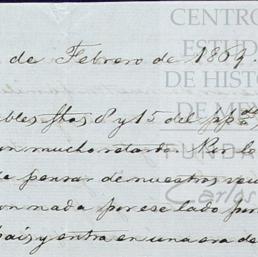 de Febrero de 1869.
bles fhas 8 y 15 del pp.do
un mucho retardo. Por lo
pensar de nuestros veci
on nada por ese lado por
pais y entra en una era de
CENTRO
ESTUD
DE HISTO
DE ME
FUNDA
Carlos